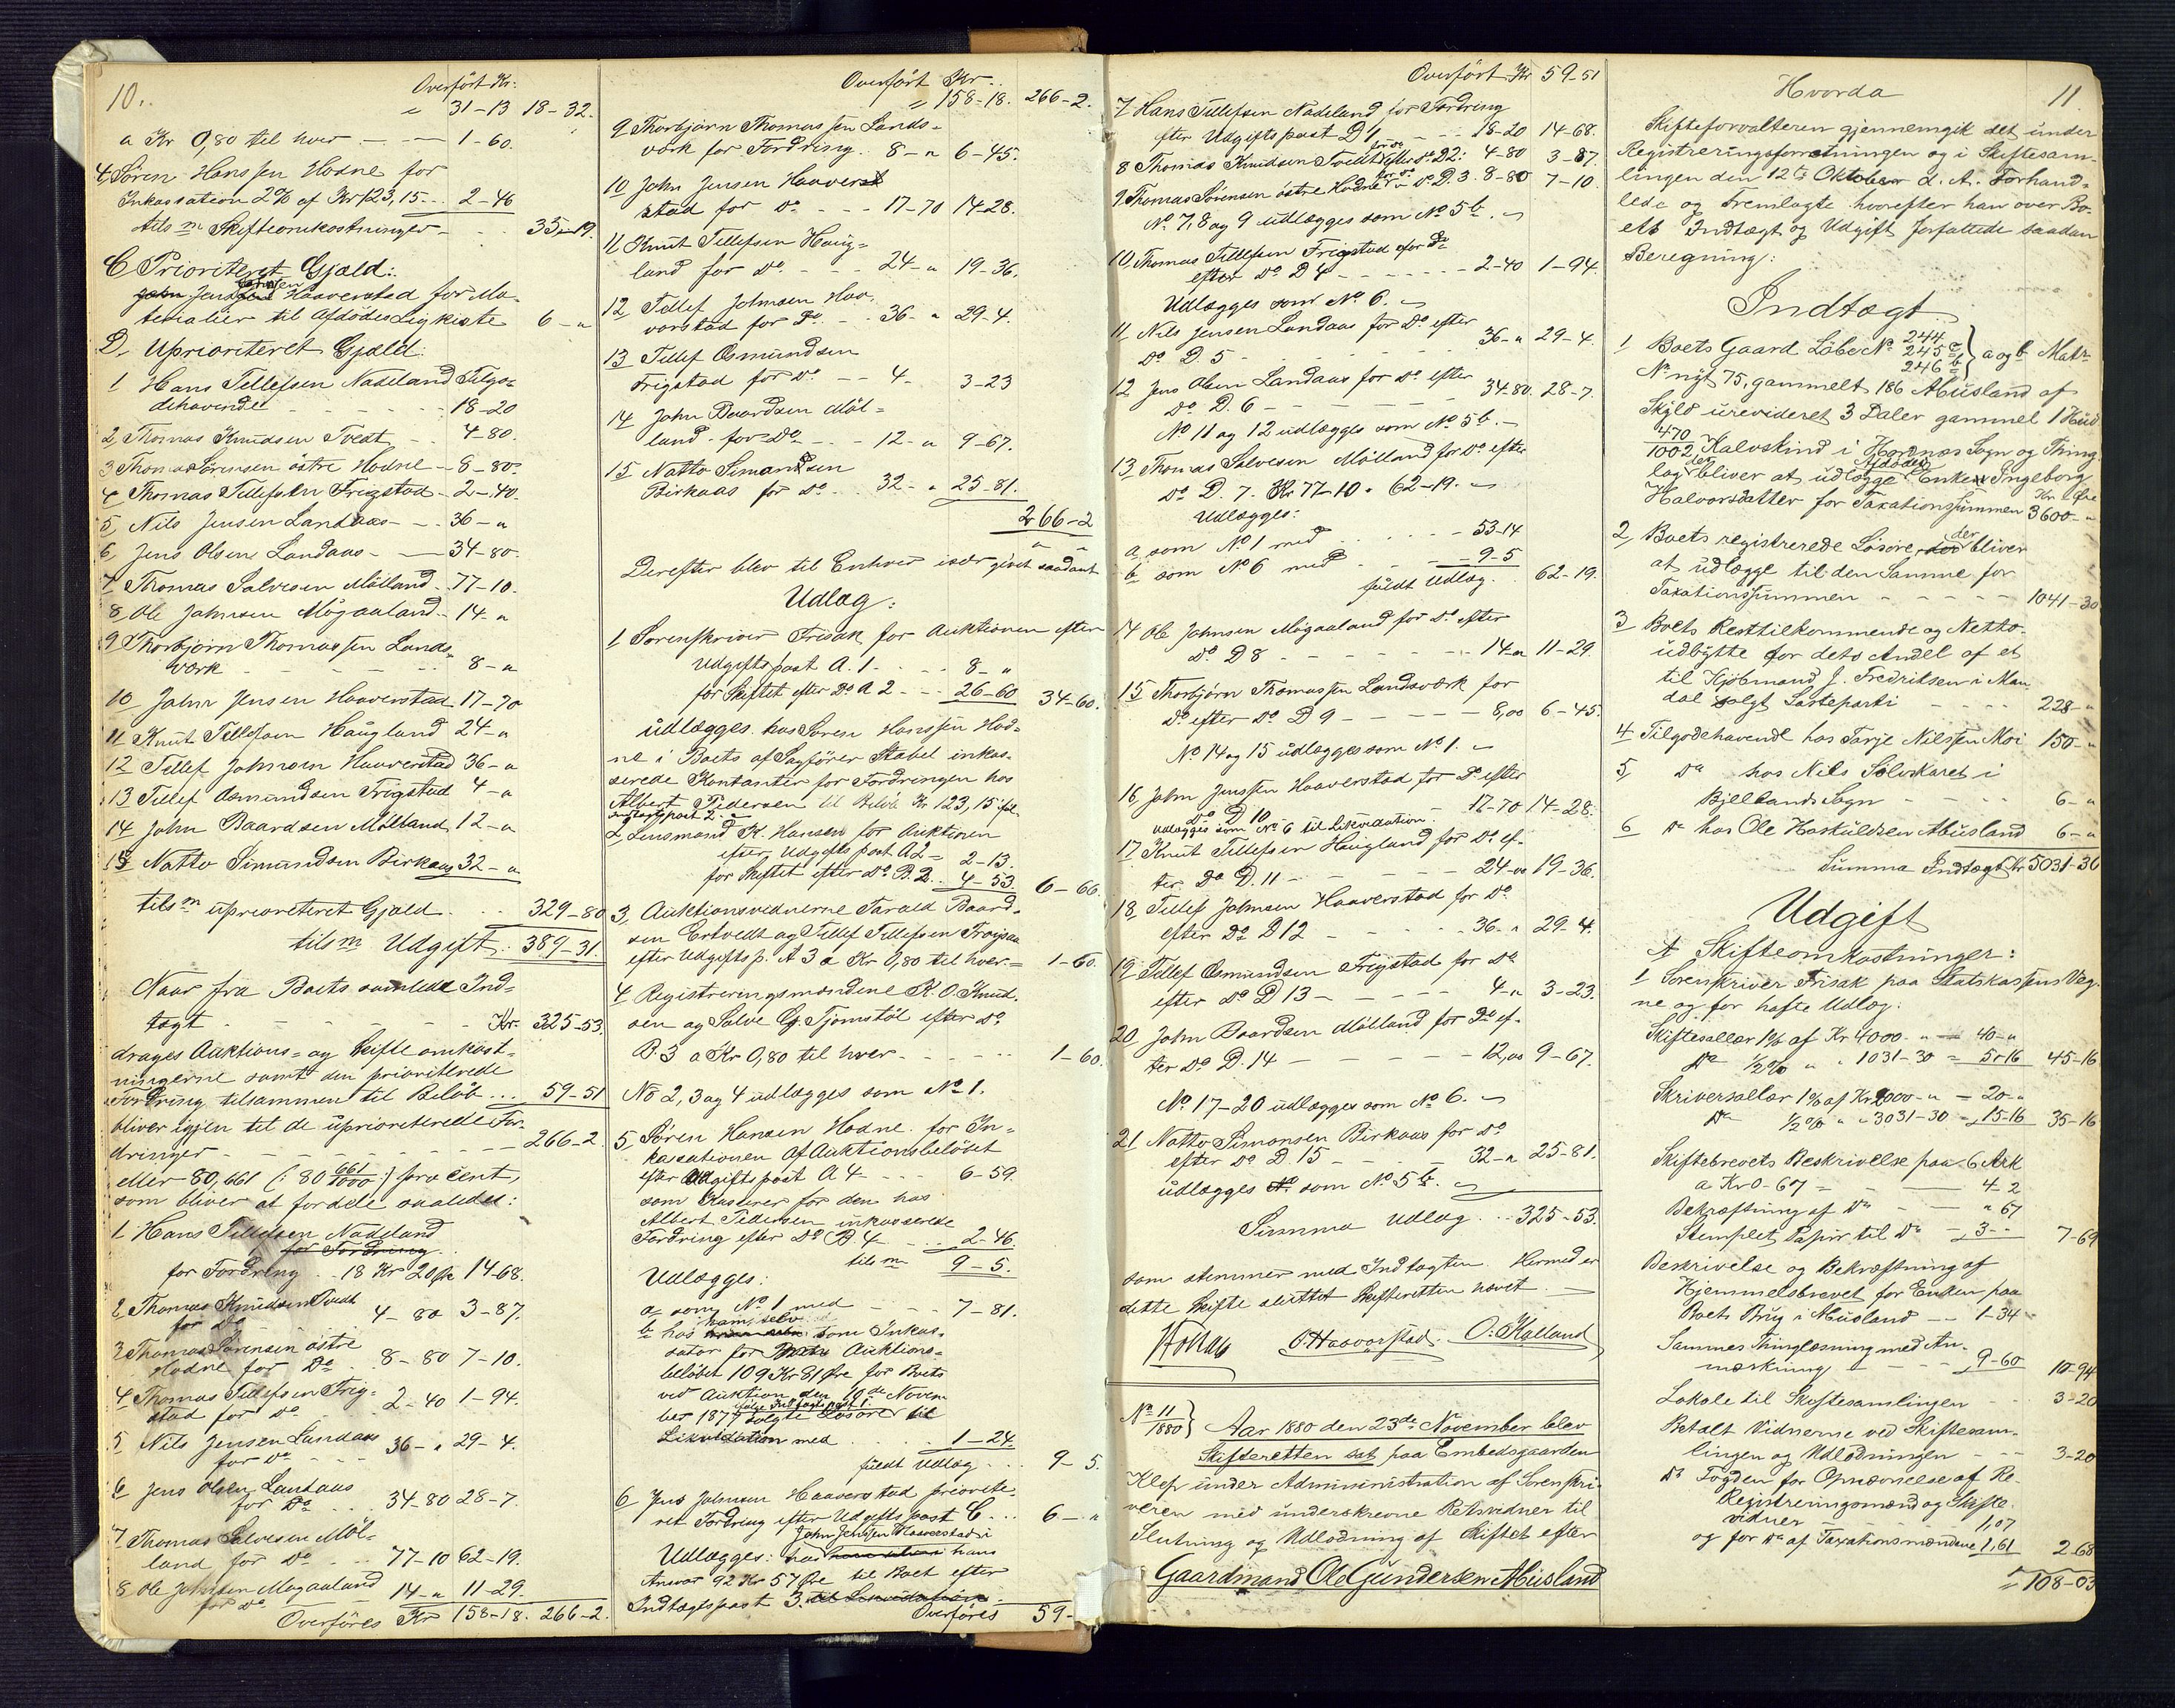 10.
Overført Kr:
" 31-13 18-32.
a Kr 0,80 til hver - - 1-60.
4, Søren Hanssen Hodne for
Inkassation 2% af Kr 123,15 - 2-46
tils m Skifteomkostninger - 35-19.
C Prioriteret Gjæld:
Jens Johnsen Haaverstad for Ma-
terialier til Afdødes Ligkiste 6-"
D, Uprioriteret Gjæld:
1 Hans Tellefsen Nadeland Tilgo-
dehavende 18-20
2, Thomas Knudsen Tvedt 4-80.
3 Thomas Sørensen østre Hodne - 8-80.
4 Thomas Tellefsen Frigstad - 2-40.
5, Nils Jensen Landaas - 36-"
6, Jens Olsen Landaas - 34-80.
7, Thomas Salvesen Mölland - 77-10.
8, Ole Johnsen Mögaaland - 14-"
9 Thorbjørn Thomassen Lands-
værk 8-"
10 John Jensen Haaverstad 17-70
11 Knut Tellefsen Haugland 24-"
12 Tellef Johnsen Haaverstad 36-"
13 Tellef Asmundsen Frigstad 4-"
14 John Baardsen Mölland 12-"
15 Natto Simundsen Birkaas 32-"
tils m uprioriteret Gjæld 329-80
tils m Udgift. 389-31.
Naar fra Boets samlede Ind-
tægt - Kr. 325-53.
drages Auktions- og Skifteomkost-
ningerne samt den prioriterede
Fordring tilsammen til Beløb ... 59-51
bliver igjen til de uprioriterede For-
dringer - 266-2.
eller 80,661 (: 80 661/1000 :) procent,
som bliver at fordele saaledes:
1 Hans Tellefsen Nadeland
for Fordring
for Fordring .. 18 Kr 20 Øre 14-68.
2, Thomas Knudsen Tvedt
for Do 4-80 3-87.
3 Thomas Sørensen østre
Hodne for Do. 8-80 7-10.
4 Thomas Tellefsen Frig-
stad for Do. 2-40 1-94.
5 Nils Jensen Landaas
for Do 36-" 29-4.
6 Jens Olsen Landaas
for Do. 34-80 28-7.
7 Thomas Salvesen Möl-
land for Do 77-10 62-19.
8 Ole Johnsen Mögaaland
for Do 14-" 11-29.
Overføres Kr 158-18. 266-2.
Overført Kr.
" 158-18. 266-2.
9 Thorbjørn Thomassen Lands-
værk for Fordring. 8-" 6-45.
10 John Jensen Haaver-
stad for Do - - 17-70 14-28.
11 Knut Tellefsen Haug-
land for Do. - - 24-" 19-36.
12 Tellef Johnsen Haa-
verstad for Do - 36-" 29-4.
13 Tellef Osmundsen
Frigstad for Do. - 4- 3-23
14 John Baardsen Möl-
land for Do - - 12-" 9-67.
15 Natto Simandsen
Birkaas for Do 32-" 25-81.
266-2
Derefter blev til Enhver især givet saadant
Udlæg:
1 Sorenskriver Frisak for Auktionen efter
Udgiftspost A. 1 - 8-"
for Skiftet efter Do A 2 - 26-60 34-60.
udlægges hos Søren Hanssen Hod-
ne i Boets af Sagfører Stabel inkas-
serede Kontanter for Fordringen hos
Albert Pedersen til Beløb Kr 123,15 føl.
Indtægtspost 2.
2 Lensmand K. Hansen for Auktionen
efter Udgiftspost A2 = 2-13.
for Skiftet efter Do. B. 2. 4-53. 6-66.
3, Auktionsvidnerne Tarald Baard-
sen Ertvedt og Tellef Tellefsen
efter Udgiftsp. A 3 a Kr 0,80 til hver - 1-60.
4 Registreringsmændene K. O. Knud-
sen og Salve G. Tjomstöl efter Do
B. 3 a Kr 0,80 til hver - 1-60.
No 2, 3 og 4 udlægges som No 1.
5, Søren Hansen Hodne for In-
kassationen af Auktionsbeløbet
efter Udgiftspost A 4 - 6-59.
som Kasserer for den hos
Albert Pedersen inkasserede
Fordring efter Do B 4 2-46
tils m 9-5.
Udlægges:
a, som No 1 med 7-81.
b hos ham selv som Inkas-
sator for Auktions-
beløbet 109 Kr 81 Øre for Boets
ved Auktion den 10de Novem-
ber 1877 solgte Løsøre til
ifølge Indtægtspost 1.
Likvidation med 1-24.
fuldt Udlæg 9-5.
6 Jens Johnsen Haaverstad priorite-
ret Fordring efter Udgiftspost C ... 6-"
John Jensen Haaverstad i
Udlægges: hos hans
Ansvar 92 Kr 57 Øre til Boet efter
Indtægtspost 3. til Likvidation.
Overføres 59-
Overført Kr 59-51
7 Hans Tellefsen Nadeland for Fordring
efter Udgiftspost D 1 - 18-20 14-68.
8 Thomas Knudsen Tvedt for Do efter Do D2: 4-80 3-87.
9 Thomas Sørensen østre Hodne for Do " Do D. 3. 8-80 7-10.
No 7, 8 og 9 udlægges som No 5 b.
10, Thomas Tellefsen Frigstad for Do
efter Do D 4 - 2-40 1-94.
Udlægges som No 6.
11 Nils Jensen Landaas for Do efter
Do D. 5 36-" 29-4.
12 Jens Olsen Landaas for Do efter
Do D. 6 - 34-80. 28-7.
No 11 og 12 udlægges som No 5 b. -
13 Thomas Salvesen Mölland for Do efter
Do D. 7. Kr 77-10 " 62-19. -
Udlægges:
a som No 1 med - 53-14
b som No 6 med - 9-5
fuldt Udlæg. 62-19.
14 Ole Johnsen Mögaaland for Do efter
Do D 8 - 14-" 11-29.
15 Thorbjørn Thomassen Landsværk for
Do efter Do D 9 - 8,00 6-45.
No 14 og 15 udlægges som No 1. -
16, John Jenssen Haaverstad for Do efter
Do D 10 17-70 14-28.
udlægges som No 6 til Likvidation.
17 Knut Tellefsen Haugland for Do ef-
ter Do D. 11 - 24-00 19-36.
18, Tellef Johnsen Haaverstad for Do
efter Do D 12 - 36-" 29-4.
19 Tellef Osmundsen Frigstad for Do
efter Do D 13 - 4-" 3-23.
20, John Baardsen Mölland for Do ef-
ter Do D. 14 - 12,00 9-67.
No 17-20 udlægges som No 6. -
21 Natto Simonsen Birkaas for Do
efter Do D. 15 32-" 25-81.
udlægges som No 5 b. -
Summa Udlæg . . 325-53.
som stemmer med Indtægten. Hermed er
dette Skifte sluttet Skifteretten hævet.
O. Haaverstad. O. Kalland
No 11/1880 } Aar 1880 den 23de November blev
Skifteretten sat paa Embedsgaarden
Klep under Administration af Sorenskri-
veren med underskrevne Retsvidner til
Slutning og Udlodning af Skiftet efter
Gaardmand Ole Gundersen Abusland
11
Hvorda
Skifteforvalteren gjennemgik det under
Registreringsforretningen og i Skiftesam-
lingen den 12te Oktober d. A. Forhand-
lede og Fremlagte hvorefter han over Bo-
ets Indtægt og Udgift forfattede saadan
Beregning:
Indtægt.
1 Boets Gaard Löbe No 244 245 a 246 b } a og b Matr-
No nyt 75, gammelt 186 Abusland af
Skyld urevideret 3 Daler gammel 1 Hud
470/1002 Kalvskind i Hornæs Sogn og Thing-
lag der bliver at udlægge Afdødes Enke Ingeborg
Halvorsdatter for Taxationssummen Kr. Øre 3600-"
2, Boets registrerede Løsøre, der bliver
at udlægge til den Samme for
Taxationssummen - 1041-30
3 Boets Resttilkommende og Netto-
udbytte for dets Andel af et
til Kjøbmand J. Fredriksen i Man-
dal solgt Lasteparti 228-"
4 Tilgodehavende hos Tarje Nilssen Moi 150-"
5, Do hos Nils Sølvskaret i
Bjellands Sogn 6-"
6 Do hos Ole Haskuldsen Abusland 6-"
Summa Indtægt Kr 5031-30
Udgift
A Skifteomkostninger:
1 Sorenskriver Frisak paa Statskassens Veg-
ne og for hafte Udlæg:
Skiftesallær 1% af Kr 4000 - " 40-"
Do ½% " " 1031-30 = 5-16 45-16
Skriversallær 1% af Kr 2000-" = 20-"
Do ½% " " 3031-30 = 15-16 35-16
Skiftebrevets Beskrivelse paa 6 Ark
a Kr 0-67 = 4-2
Bekræftning af Do " 67
Stemplet Papir til Do - 3-" 7-69
Beskrivelse og Bekræftning af
Hjemmelsbrevet for Enken paa
Boets Brug i Abusland - 1-34
Sammes Thinglæsning med An-
mærkning 9-60 10-94
Lokale til Skiftesamlingen 3-20
Betalt Vidnerne ved Skiftesam-
lingen og Udlodningen - 3-20
Do Fogden for Opnævnelse af Re-
Registreringsmænd og Skifte-
vidner 1,07
og for Do af Taxationsmændene 1,61 2-68
" 108-03